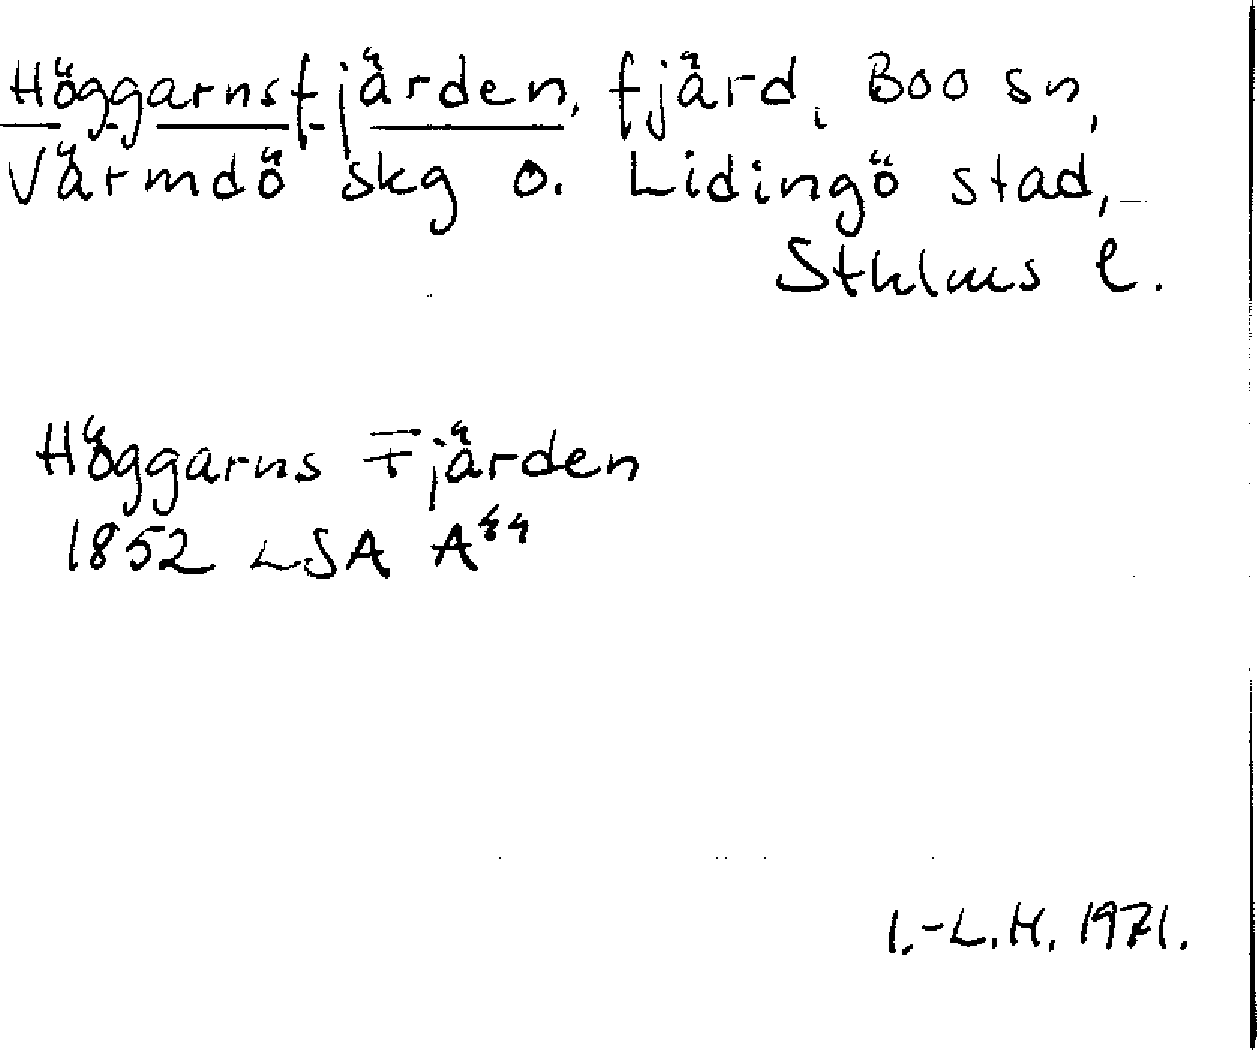 Höggarnsfjärden, fjärd, Boo sn,
Värmdö skg o. Lidingö stad,
Sthlms l.
Höggarns Fjärden
1852 LSA A
I.-L.H. 1971.